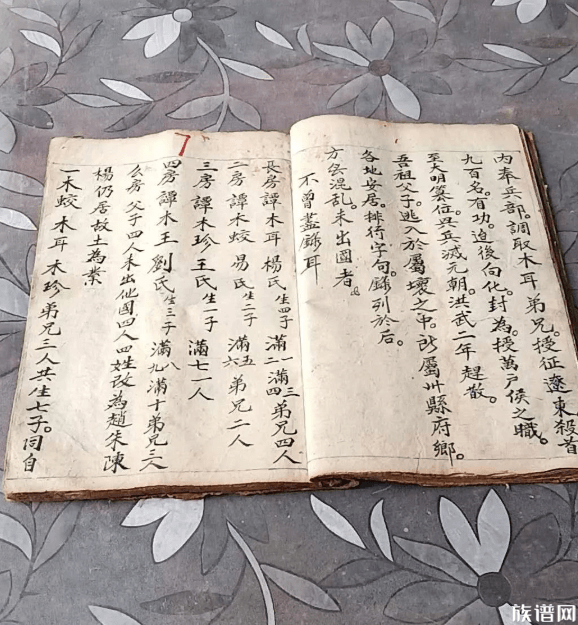 內奉兵部。調取木耳弟兄。授征遼東殺首
九百名。有功。迨後向化。封為。授萬戶侯之職。
至大明篡位。兴兵滅元朝。洪武二年 趕散。
吾祖父子。逃入於屬壩之中。所屬州縣府鄉。
各地安居。排行字句。錄列於后。
方無混乱。未出國者。
不曾盡錄耳
7
長房譚木耳 楊氏 生四子 滿一 滿二 滿三 滿四 弟兄四人
二房譚木蛟 易氏 生二子 滿五 滿六 弟兄二人
三房譚木珍 王氏 生一子 滿七一人
四房譚木王 劉氏 生三子 滿八 滿九 滿十 弟兄三人
么房 父子四人未出他國四人四姓改為趙朱陳
楊仍居故土為業
一木蛟 木耳 木珍 弟兄三人共生七子。同自
族谱网
www.zupu.cn